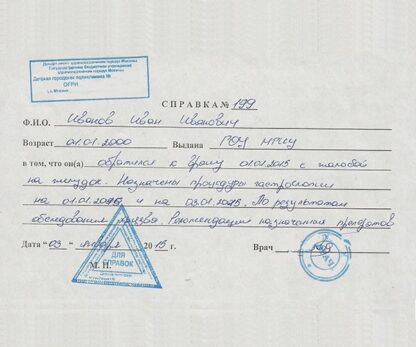 Департамент здравоохранения города Москвы
Государственное бюджетное учреждение
здравоохранения города Москвы
Детская городская поликлиника №
ОГРН
г. Москва
СПРАВКА № 199
Ф.И.О. Иванов Иван Иванович
Возраст 01.01.2000 Выдана РОУ
в том, что он(а) обратился к врачу 01.01.2015 с жалобой
на желудок. Назначены процедуры гастроскопии
на 01.01.2015 и на 03.01.2015. По результатам
обследования язва. Рекомендации назначения препаратов
Дата "03" января 2015 г. Врач
М. П.
ДЛЯ
СПРАВОК
ВРАЧ